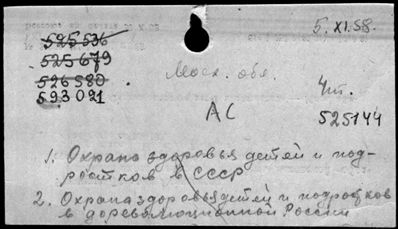 5. XI.58.
525 536
525 679
526 580
593 021
Моск. обл.
Чт.
АС
525144
1. Охрана здоровья детей и под-
ростков в СССР
2. Охрана здоровья детей и подростков
в дореволюционной России